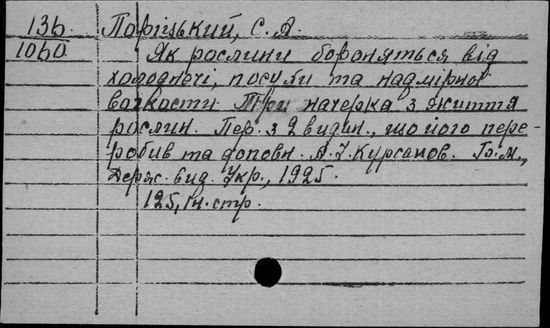 13б. Порецький, С. А.
1060 Як рослини бороняться від
холоднечі, посухи та надмірної
вогкости Три начерка з життя
рослин. Пер. з 2 видан., що його пере-
робив та доповн. Л. І. Курсанов. Б. м.,
Держ. вид. Укр., 1925.
125, Ін. стр.